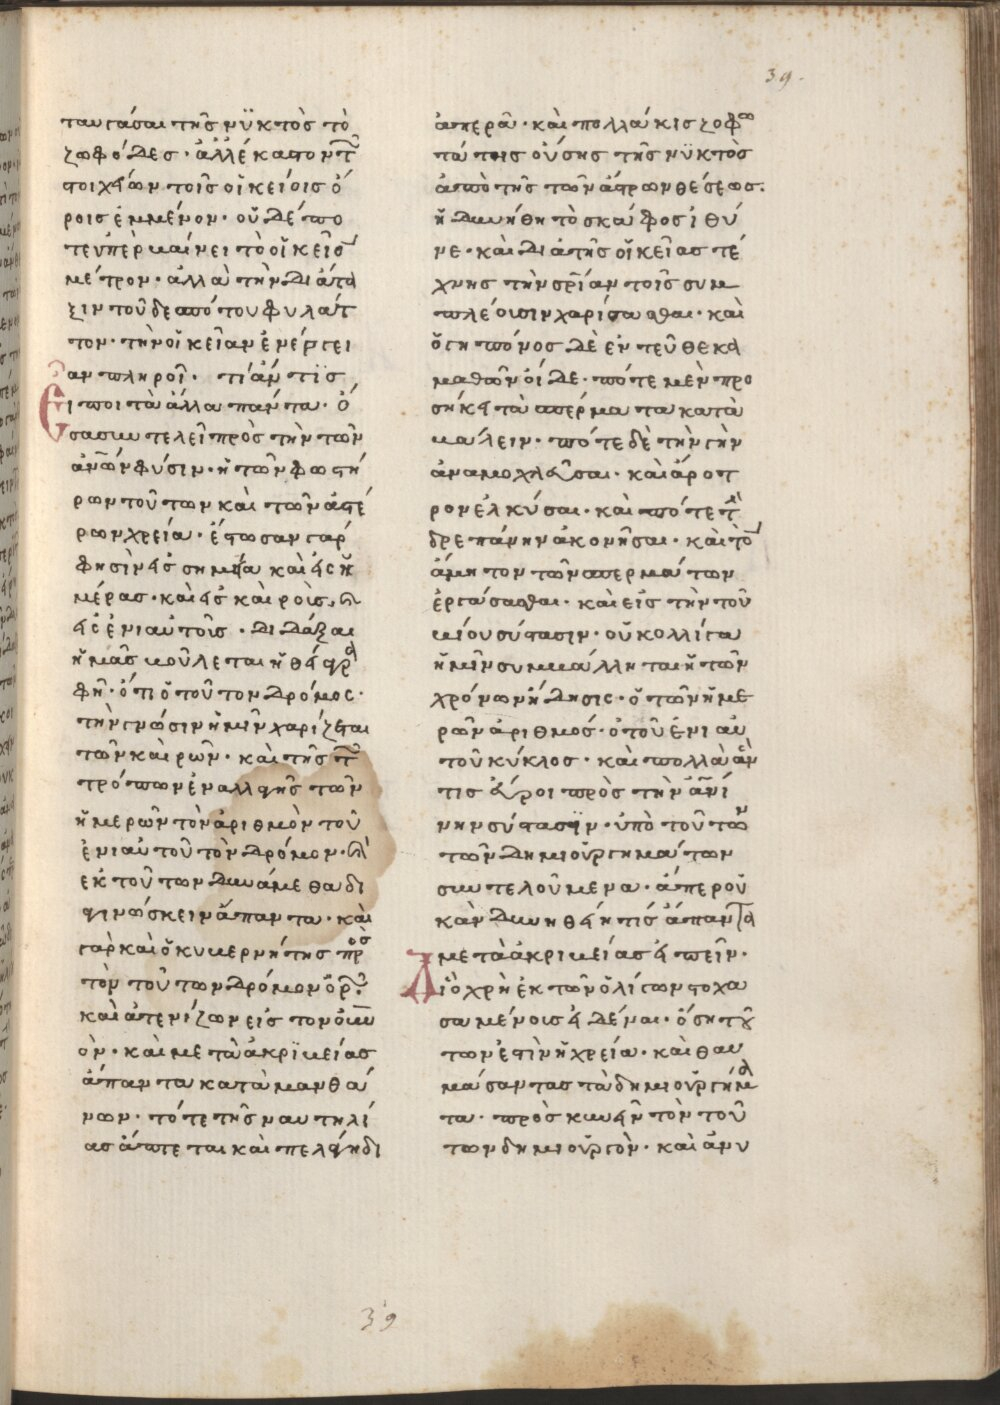 39.
ταυγάσαι τῆς νϋκτὸς τὸ
ζωφόδες· ἀλλ' ἕκαστον τῶν
στοιχείων τοῖς οἰκείοις ὅ
ροις ἐμμένον· οὐδέπο
τε ὑπερβαίνει τὸ οἰκεῖον
μέτρον· ἀλλὰ τὴν διάτα
ξιν τοῦ δεσπότου φυλάτ
τον· τὴν οἰκεῖαν ἐνέργει
αν πληροῖ· τί ἄν τϊς
εἴποι τὰ ἄλλα πάντα· ὅ
σα συντελεῖ πρὸς τὴν τῶν
ἀνῶν φύσιν· ἡ τῶν φωστή
ρων τούτων καὶ τῶν ἀστέ
ρων χρεία· ἔστωσαν γάρ
φησὶν εἰς σημεῖα καὶ εἰς ἡ
μέρας· καὶ εἰς καιροὺς, καὶ
εἰς ἐνιαυτοῖς· διδάξαι
ἡμᾶς βούλεται ἡ θεία γρα
φή· ὅτι ὁ τούτον δρόμος·
τὴν γνῶσιν ἡμῖν χαρίζεται
τῶν καιρῶν· καὶ τῆς τῶν
τρόπων ἐναλλαγῆς τῶν
ἡμερῶν τὸν ἀριθμὸν τοῦ
ἐνιαυτοῦ τὸν δρόμον· καὶ
ἐκ τούτων δυνάμεθα δι
γινώσκειν ἅπαντα· καὶ
γὰρ καὶ ὁ κυβερνήτης πρὸς
τὸν τούτων δρόμον ὁρῶν
καὶ ἀτενίζων εἰς τὸν οὐν
όν· καὶ μετὰ ἀκριβείας
ἅπαντα καταμανθά
νων· τότε τῆς ναυτηλί
ας ἅπτεται καὶ πελάγη δι
ἀπερᾶ· καὶ πολλάκις ζοφω
τάτης οὔσης τῆς νϋκτὸς
ἀπὸ τῆς τῶν ἄστρων θέσεως·
ἠδυνήθη τὸ σκάφος ἰθύ
νε· καὶ διὰ τῆς οἰκείας τέ
χνης τὴν σρίαν τοῖς συμ
πλέουσιν χαρίσασθαι· καὶ
ὁ γηπόνος δὲ ἐντεῦθεν κα
μαθὼν οἶδε· πότε μὲν προ
σήκει τὰ σπέρματα κατα
βάλειν· πότε δὲ τὴν γῆν
ἀναμοχλεῦσαι· καὶ ἄροτ
ρον ἑλκύσαι· καὶ πότε τὴν
δρεπάνην ἀκονῆσαι· καὶ τὸν
ἄμητον τῶν σπερμάτων
ἐργάσασθαι· καὶ εἰς τὴν τοῦ
βίου σύστασιν· οὐκ ὀλλίγα
ἡμῖν συμβάλληται ἡ τῶν
χρόνων εἴδησις· ὁ τῶν ἡμε
ρῶν ἀριθμός· ὁ τοῦ ἐνιαυ
τοῦ κύκλος· καὶ πολλὰ ἄν
τις εὕροι πρὸς τὴν ἀνί
νην σύστασϊν· ὑπὸ τούτων
τῶν δημιουργημάτων
συντελούμενα· ἅπερ οὐ
κἂν δυνηθείη τίς ἅπαντα
μετὰ ἀκριβείας εἰπεῖν·
Διὸ χρὴ ἐκ τῶν ὀλίγων στοχα
σαμένοις εἰδέναι· ὅση τού
των ἐστὶν ἡ χρεία· καὶ θαυ
μάσαντας τὰ δημιουργήμα
τα· προσκυνεῖν τὸν τού
των δημιουργόν· καὶ ἀνυ
39